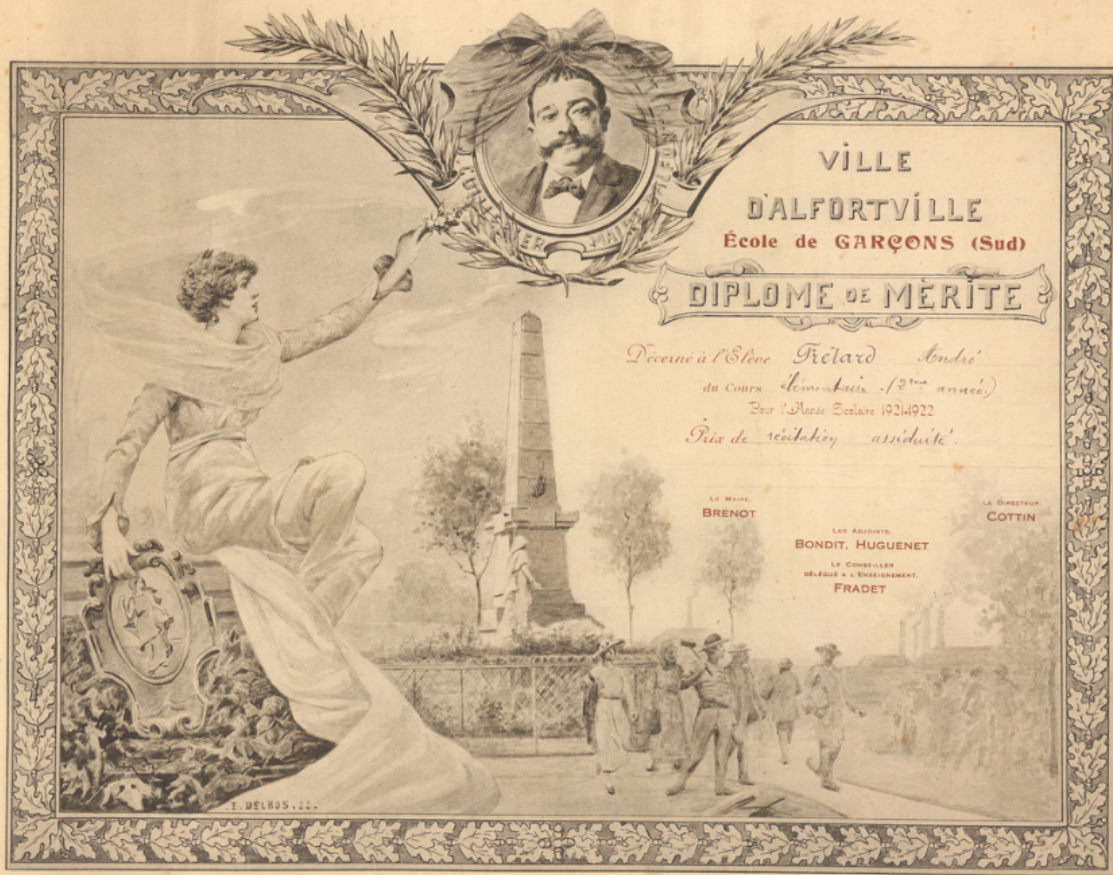 VILLE
D'ALFORTVILLE
École de GARÇONS (Sud)
DIPLOME DE MÈRITE
Décerné à l'Elève Frétard André
du Cours élémentaire (2ème année)
Pour l'Année Scolaire 1921-1922
Prix de récitation assiduité.
LE MAIRE,
BRENOT
LE DIRECTEUR,
COTTIN
LES ADJOINTS,
BONDIT, HUGUENET
LE CONSEILLER
DÉLÉGUÉ A L'ENSEIGNEMENT,
FRADET
MAIRE
E. DELBOS. 22.